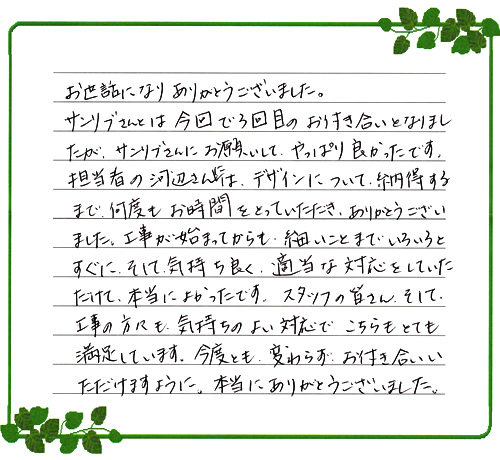 お世話になりありがとうございました。
サンリブさんとは今回で3回目のお付き合いとなりまし
たが、サンリブさんにお願いして、やっぱり良かったです。
担当者の河辺さんは、デザインについて、納得する
まで、何度もお時間をとっていただき、ありがとうござい
ました。工事が始まってからも、細いことまでいろいろと
すぐに、そして、気持ち良く、適当な対応をしていた
だけて、本当によかったです。スタッフの皆さん、そして、
工事の方にも、気持ちのよい対応で、こちらもとても
満足しています。今度とも、変わらず、お付き合いい
ただけますように。本当にありがとうございました。